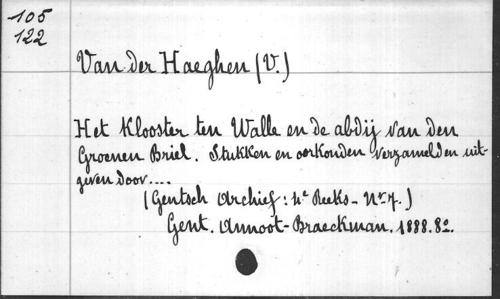 105
122
Van der Haeghen (V.)
Het Klooster ten Walle en de abdij van den
Groenen Briel. Stukken en oorkonden verzamelden uit-
geven door....
(Gentsch Archief: 4e Reeks - Nr 7.)
Gent. Annoot-Braeckman. 1888. 8o.